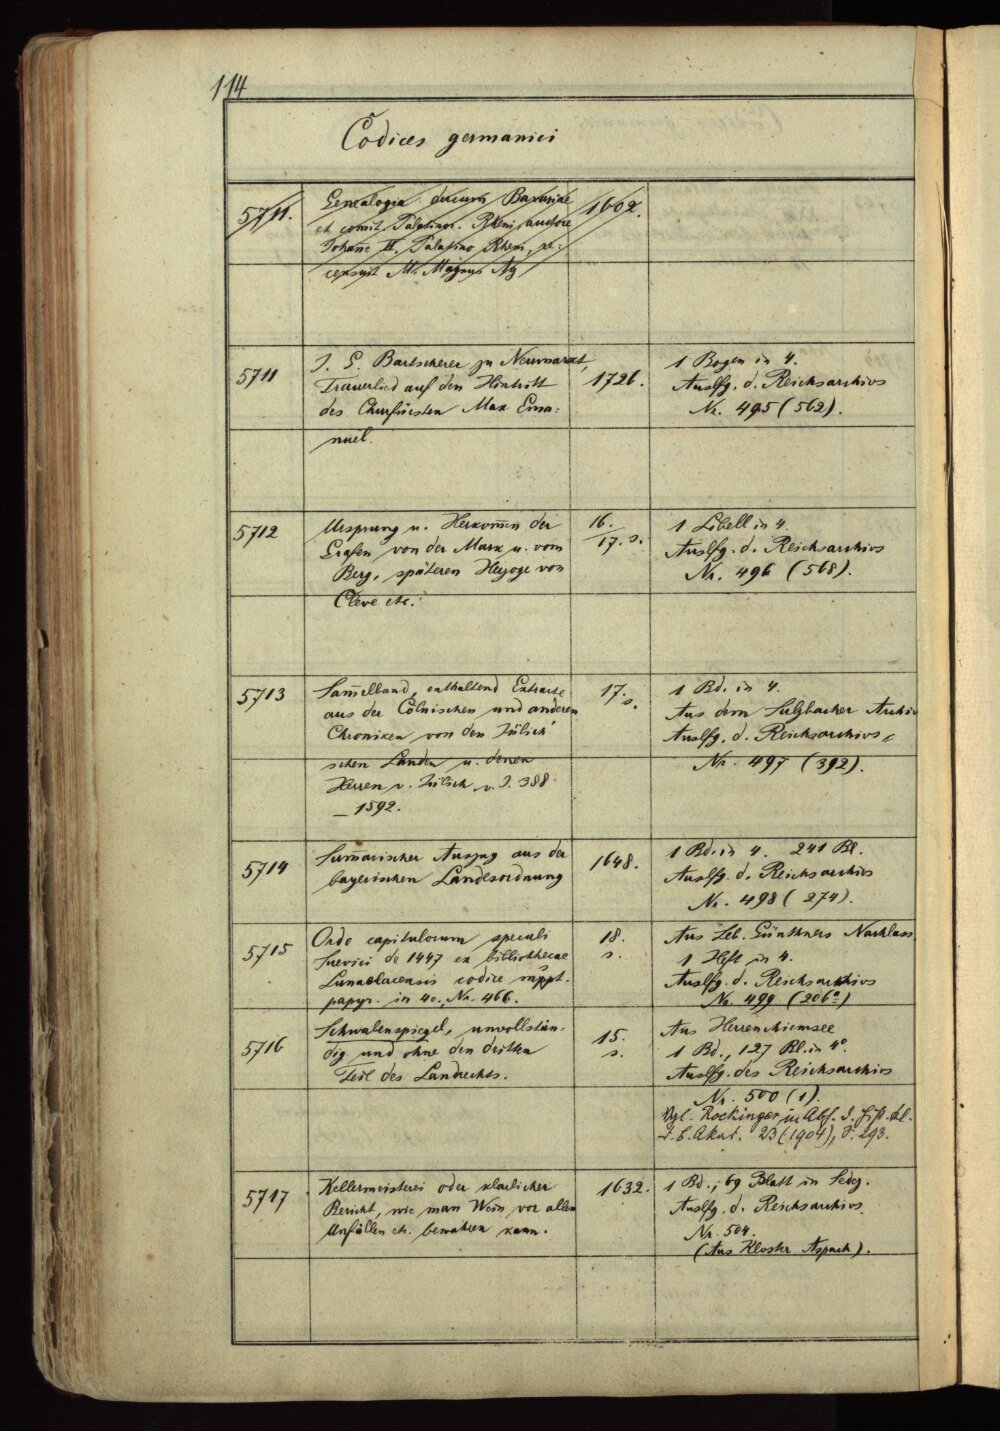 114
Codices germanici
5711.
Genealogia ducum Bavariae
et comit. Palatinor. Rheni, auctore
Johane II. Palatino Rheni, re-
censuit M. Magnus Ag
1602.
5711
J. G. Bartscherer zu Neumarkt,
Trauerlied auf den Hintritt
des Churfürsten Max Ema-
nuel.
1726.
1 Bogen in 4.
Auslfg. d. Reichsarchivs
Nr. 495 (562).
5712
Ursprung u. Herkom̄en der
Grafen von der Mark u. vom
Berg, späteren Herzoge von
Cleve etc.
16.
17. s.
1 Libell in 4.
Auslfg. d. Reichsarchivs
Nr. 496 (568).
5713
Sam̄elband, enthaltend Extracte
aus der Cölnischen und anderen
Chroniken von den Jülich'
schen Landen u. deren
Herren v. Jülich v. J. 388
– 1592.
17.
s.
1 Bd. in 4.
Aus dem Sulzbacher Archiv
Auslfg. d. Reichsarchivs,
Nr. 497 (392).
5714
Sum̄arischer Auszug aus der
bayerischen Landesordnung
1648.
1 Bd. in 4. 241 Bl.
Auslfg. d. Reichsarchivs
Nr. 498 (274).
5715
Ordo capitulorum speculi
Suevici de 1447 ex bibliothecae
Lunaelacensis codice mspt.
papyr. in 4o., Nr. 466.
18.
s.
Aus Seb. Günthners Nachlass
1 Heft in 4.
Auslfg. d. Reichsarchivs
Nr. 499 (206a)
5716
Schwabenspiegel, unvollstän-
dig und ohne den dritten
Teil des Landrechts.
15.
s.
Aus Herrenchiemsee
1 Bd., 127 Bl. in 4°.
Auslfg. des Reichsarchivs
Nr. 500 (1).
Vgl. Rockinger in Abh. d. hist. Kl.
d. b. Akad. 23 (1904), S. 293.
5717
Kellermeisterei oder klarlicher
Bericht, wie man Wein vor allen
Unfällen etc. bewahren kann.
1632.
1 Bd., 69 Blatt in Sedez.
Auslfg. d. Reichsarchivs
Nr. 504.
(Aus Kloster Aspach).